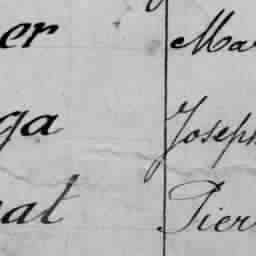 er Mar
ga Joseph
at Pier